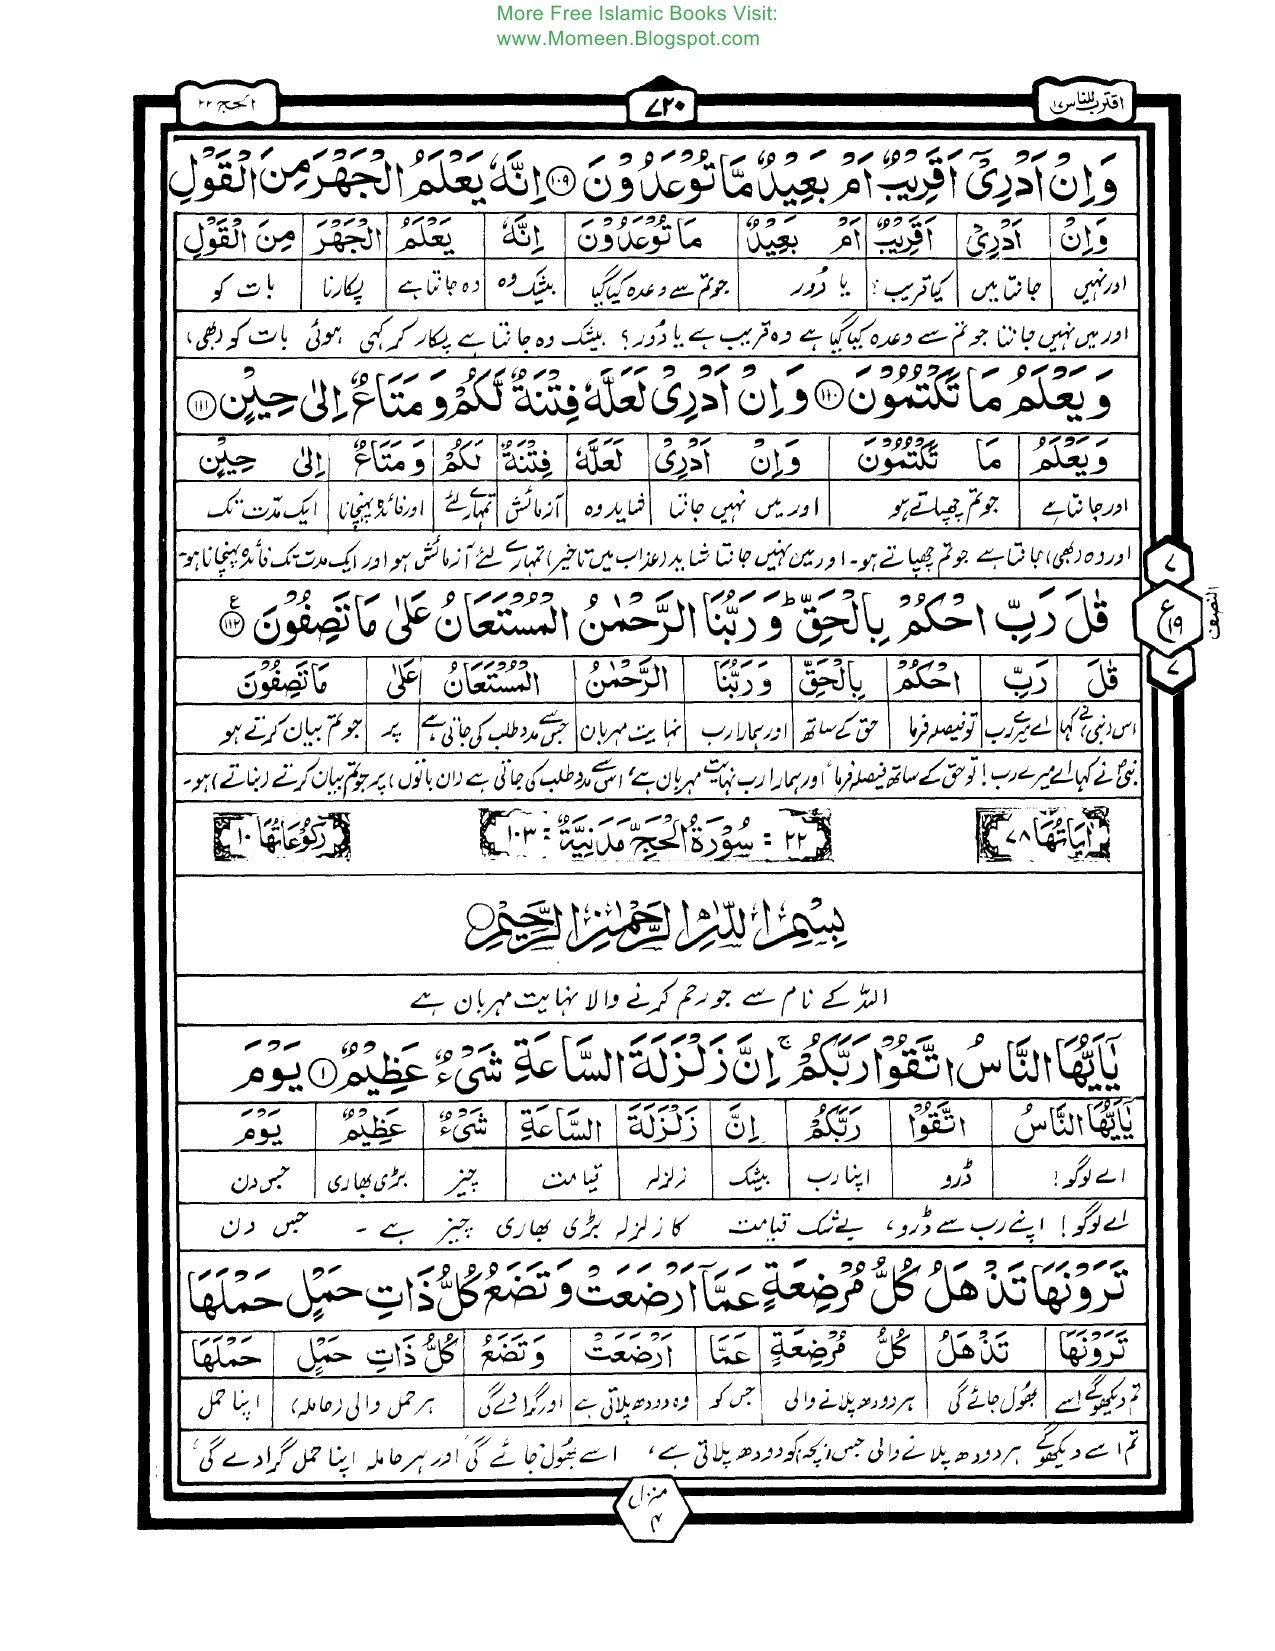 More Free Islamic Books Visit:
www.Momeen.Blogspot.com
اقترب للناس ۱۷
۷۲۰
الحج ۲۲
وَاِنْ اَدْرِیْۤ اَقَرِیْبٌ اَمْ بَعِیْدٌ مَّا تُوْعَدُوْنَ ﴿۱۰۹﴾ اِنَّهٗ یَعْلَمُ الْجَهْرَ مِنَ الْقَوْلِ
وَاِنْ اَدْرِیْۤ اَقَرِیْبٌ اَمْ بَعِیْدٌ مَّا تُوْعَدُوْنَ اِنَّهٗ یَعْلَمُ الْجَهْرَ مِنَ الْقَوْلِ
اور نہیں جانتا میں کیا قریب؟ یا دُور جو تم سے وعدہ کیا گیا بیشک وہ وہ جانتا ہے پکارنا بات کو
اور میں نہیں جانتا جو تم سے وعدہ کیا گیا ہے وہ قریب ہے یا دُور؟ بیشک وہ جانتا ہے پکار کر کہی ہوئی بات کو (بھی)
وَیَعْلَمُ مَا تَكْتُمُوْنَ ﴿۱۱۰﴾ وَاِنْ اَدْرِیْ لَعَلَّهٗ فِتْنَةٌ لَّكُمْ وَمَتَاعٌ اِلٰی حِیْنٍ ﴿۱۱۱﴾
وَیَعْلَمُ مَا تَكْتُمُوْنَ وَاِنْ اَدْرِیْ لَعَلَّهٗ فِتْنَةٌ لَّكُمْ وَمَتَاعٌ اِلٰی حِیْنٍ
اور جانتا ہے جو تم چھپاتے ہو اور میں نہیں جانتا شاید وہ آزمائش تمہارے لئے اور فائدہ پہنچانا ایک مدّت تک
اور وہ (بھی) جانتا ہے جو تم چھپاتے ہو۔ اور میں نہیں جانتا شاید (عذاب میں تاخیر) تمہارے لئے آزمائش ہو اور ایک مدت تک فائدہ پہنچانا ہو۔
قٰلَ رَبِّ احْكُمْ بِالْحَقِّ ؕ وَرَبُّنَا الرَّحْمٰنُ الْمُسْتَعَانُ عَلٰی مَا تَصِفُوْنَ ﴿۱۱۲﴾ ع
۷ ع ۱۹ ۷
النصف
قٰلَ رَبِّ احْكُمْ بِالْحَقِّ وَرَبُّنَا الرَّحْمٰنُ الْمُسْتَعَانُ عَلٰی مَا تَصِفُوْنَ
اس (نبی) نے کہا اے میرے رب تو فیصلہ فرما حق کے ساتھ اور ہمارا رب نہایت مہربان جس سے مدد طلب کی جاتی ہے پر جو تم بیان کرتے ہو
نبی نے کہا اے میرے رب! تو حق کے ساتھ فیصلہ فرما، اور ہمارا رب نہایت مہربان ہے، اسی سے مدد طلب کی جاتی ہے (ان باتوں) پر جو تم بیان کرتے (بناتے) ہو۔
اٰیَاتُهَا ۷۸ ۲۲ = سُوْرَةُ الْحَجِّ مَدَنِیَّةٌ = ۱۰۳ رُكُوْعَاتُهَا ۱۰
بِسْمِ اللّٰهِ الرَّحْمٰنِ الرَّحِیْمِ
اللہ کے نام سے جو رحم کرنے والا نہایت مہربان ہے
یٰۤاَیُّهَا النَّاسُ اتَّقُوْا رَبَّكُمْ ۚ اِنَّ زَلْزَلَةَ السَّاعَةِ شَیْءٌ عَظِیْمٌ ﴿۱﴾ یَوْمَ
یٰۤاَیُّهَا النَّاسُ اتَّقُوْا رَبَّكُمْ اِنَّ زَلْزَلَةَ السَّاعَةِ شَیْءٌ عَظِیْمٌ یَوْمَ
اے لوگو! ڈرو اپنا رب بیشک زلزلہ قیامت چیز بڑی بھاری جس دن
اے لوگو! اپنے رب سے ڈرو، بے شک قیامت کا زلزلہ بڑی بھاری چیز ہے۔ جس دن
تَرَوْنَهَا تَذْهَلُ كُلُّ مُرْضِعَةٍ عَمَّاۤ اَرْضَعَتْ وَتَضَعُ كُلُّ ذَاتِ حَمْلٍ حَمْلَهَا
تَرَوْنَهَا تَذْهَلُ كُلُّ مُرْضِعَةٍ عَمَّا اَرْضَعَتْ وَتَضَعُ كُلُّ ذَاتِ حَمْلٍ حَمْلَهَا
تم دیکھو گے اسے بھُول جائے گی ہر دودھ پلانے والی جس کو وہ دودھ پلاتی ہے اور گرا دے گی ہر حمل والی (حاملہ) اپنا حمل
تم اسے دیکھو گے ہر دودھ پلانے والی جس (بچہ) کو دودھ پلاتی ہے، اسے بھُول جائے گی، اور ہر حاملہ اپنا حمل گرا دے گی،
منزل ۴